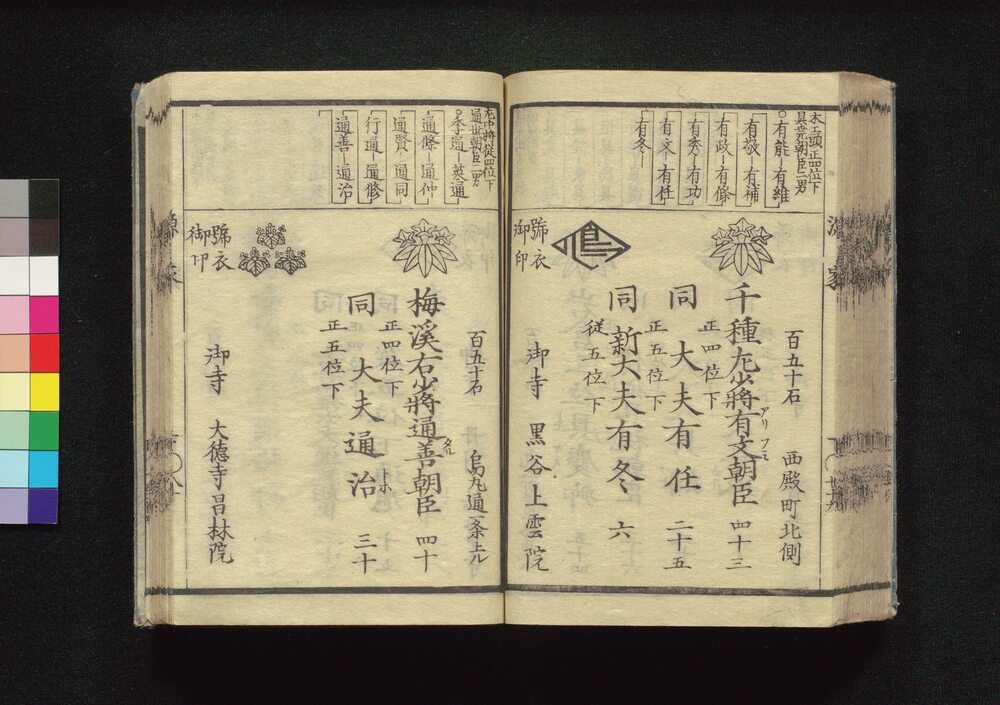 木工頭正四位下
具堯朝臣二男
○有能－有維
有敬－有補
有政－有條
有秀－有功
有文－有任
有冬－
百五十石　西殿町北側
千種左少將有文朝臣　四十三
アリ　フミ
正四位下
同　大夫有任　二十五
正五位下
同　新大夫有冬　六
従五位下
御寺　黒谷上雲院
號衣
御印
左中將従四位下
通世朝臣二男
○季通－英通
通條－通仲
通賢－通同
行通－通修
通善－通治
百五十石　烏丸通一条上ル
梅溪右少將通善朝臣　四十
タル
正四位下
同　大夫通治　三十
正五位下
御寺　大徳寺昌林院
號衣
御印
源家